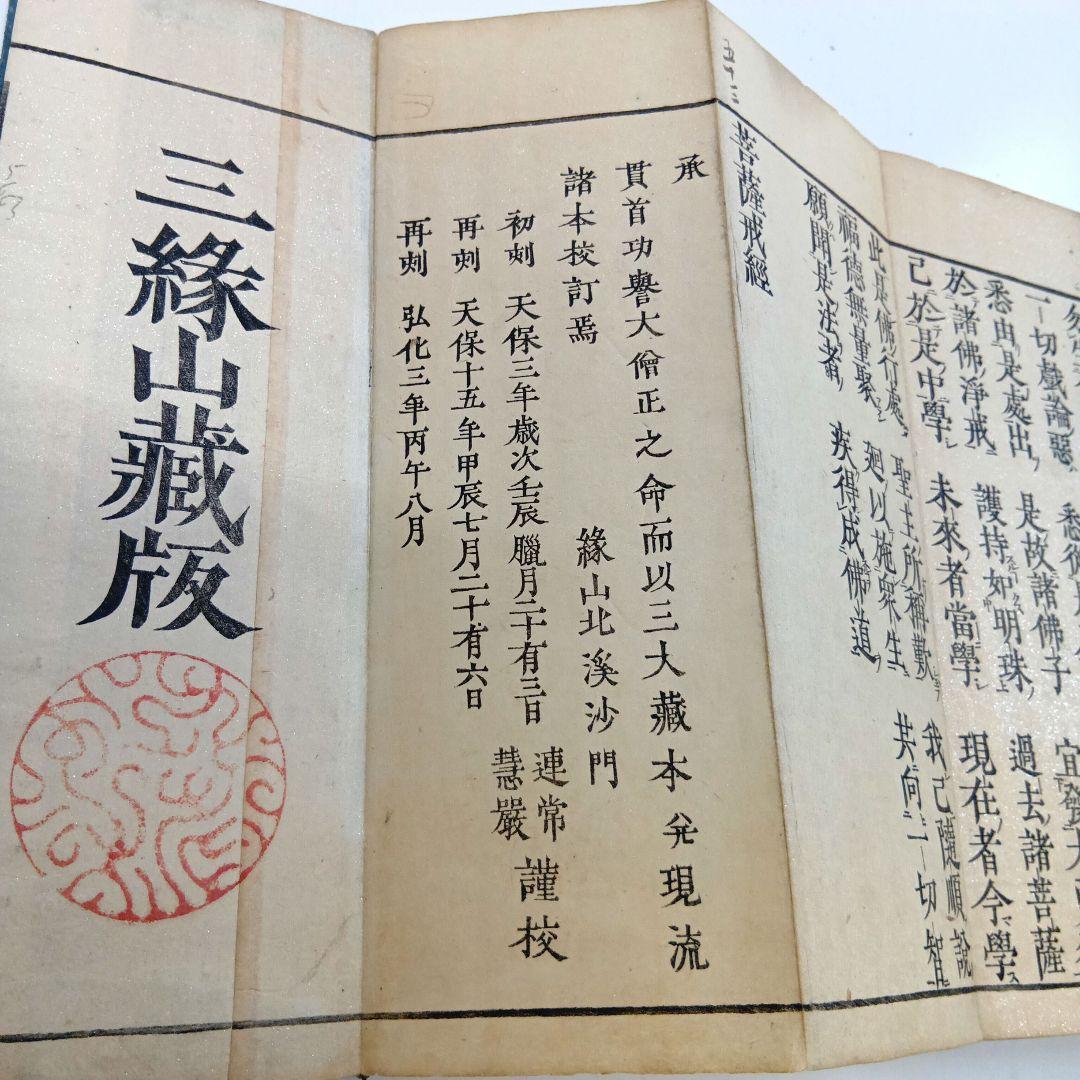 一切戲論惡
悉由是處出 是故諸佛子 宜發大
於諸佛淨戒 護持如明珠 過去諸菩薩
己於是中學 未來者當學 現在者今學
此是佛行處 聖主所稱歎 我己隨順說
福德無量聚 廻以施眾生 共向一切智
願聞是法者 疾得成佛道
菩薩戒經
五十三
承
貫首功譽大僧正之命而以三大藏本及現流
諸本校訂焉 緣山北溪沙門 連常 慧嚴 謹校
初刻 天保三年歲次壬辰臘月二十有三日
再刻 天保十五年甲辰七月二十有六日
再刻 弘化三年丙午八月
三緣山藏版